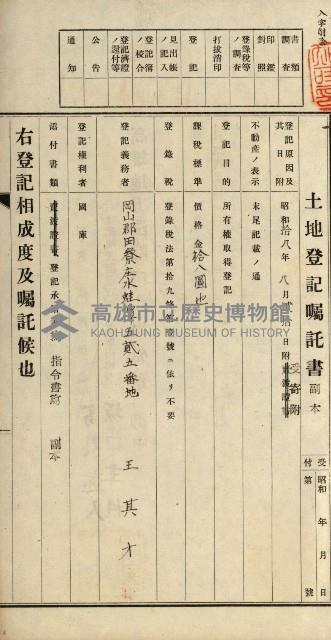 土地登記嘱託書 副本
受付 昭和 年 月 日
第 號
登記原因及其日附 昭和拾八年八月 日附 受寄附
不動産ノ表示 末尾記載ノ通
登記目的 所有權取得登記
課税標準 價格金拾八圓也
登錄税 登錄税法第拾九條 號ニ依リ不要
登記義務者 岡山郡田寮庄 五貳五番地
王其才
登記權利者 國庫
添付書類 登記承 指令書寫 副本
右登記相成度及嘱託候也
書類調査
印鑑對照
登錄税等ノ調査
打拔消印
登記
見出帳ノ記入
登記簿ノ校合
登記濟證ノ還付等
公告
通知
高雄市立歷史博物館
KAOHSIUNG MUSEUM OF HISTORY